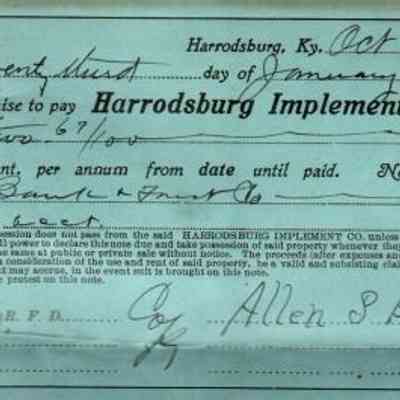 Harrodsburg, Ky. Oct
enty third day of January
ise to pay Harrodsburg Implement
Two 67/100
nt, per annum from date until paid. No
Bank & Trust Co
acct.
session does not pass from the said HARRODSBURG IMPLEMENT CO. unless
ll power to declare this note due and take possession of said property whenever they
e same at public or private sale without notice. The proceeds (after expenses and
a consideration of the use and rent of said property, be a valid and subsisting clai
t may accrue, in the event suit is brought on this note.
e protest on this note.
R. F. D. Allen S